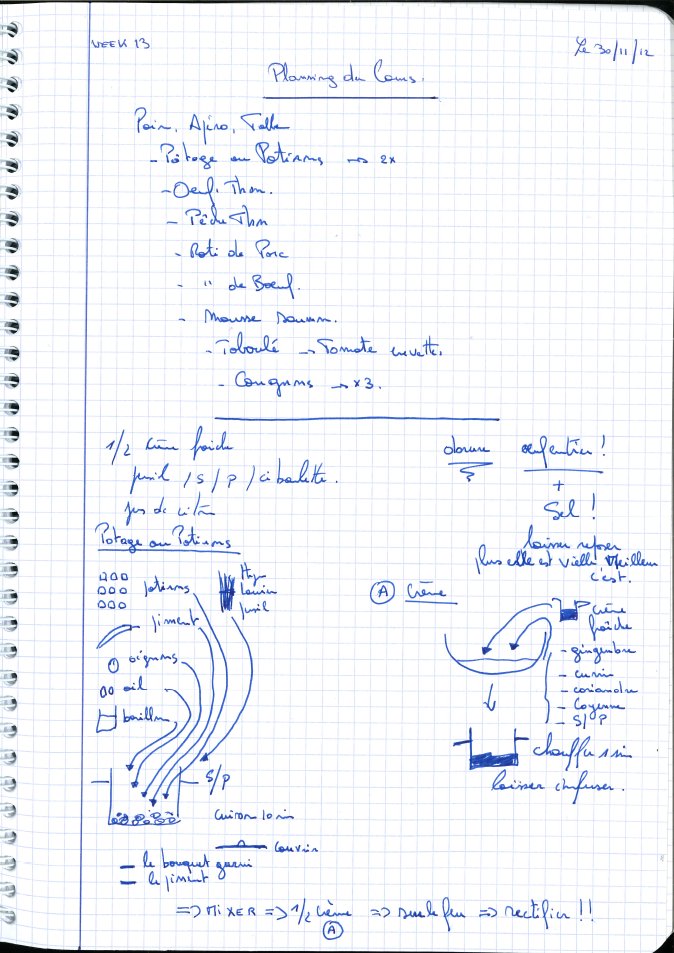 WEEK 13
Le 30/11/12
Planning du Cours.
Pain, Apéro, Table
- Potage au Potirons → 2x
- Oeuf. Thon.
- Pêche Thon
- Roti de Porc
- " de Boeuf.
- Mousse saumon.
- Taboulé → Tomate crevette.
- Cougnons → x3.
1/2 crème fraiche
persil / S / P / ciboulette.
jus de citron
dorure oeuf entier !
+
Sel !
laisser reposer
plus elle est vieille, meilleur
c'est.
Potage au Potirons
potirons
piment
oignons
ail
bouillon
Thym
Laurier
persil
S/P
cuisson 10 min
couvrir
– le bouquet garni
– le piment
(A) Crème
crème
fraîche
- gingembre
- cumin
- coriandre
- Cayenne
- S/P
chauffer 1 min
laisser infuser.
=> MIXER => 1/2 crème => sur le feu => rectifier !!
(A)